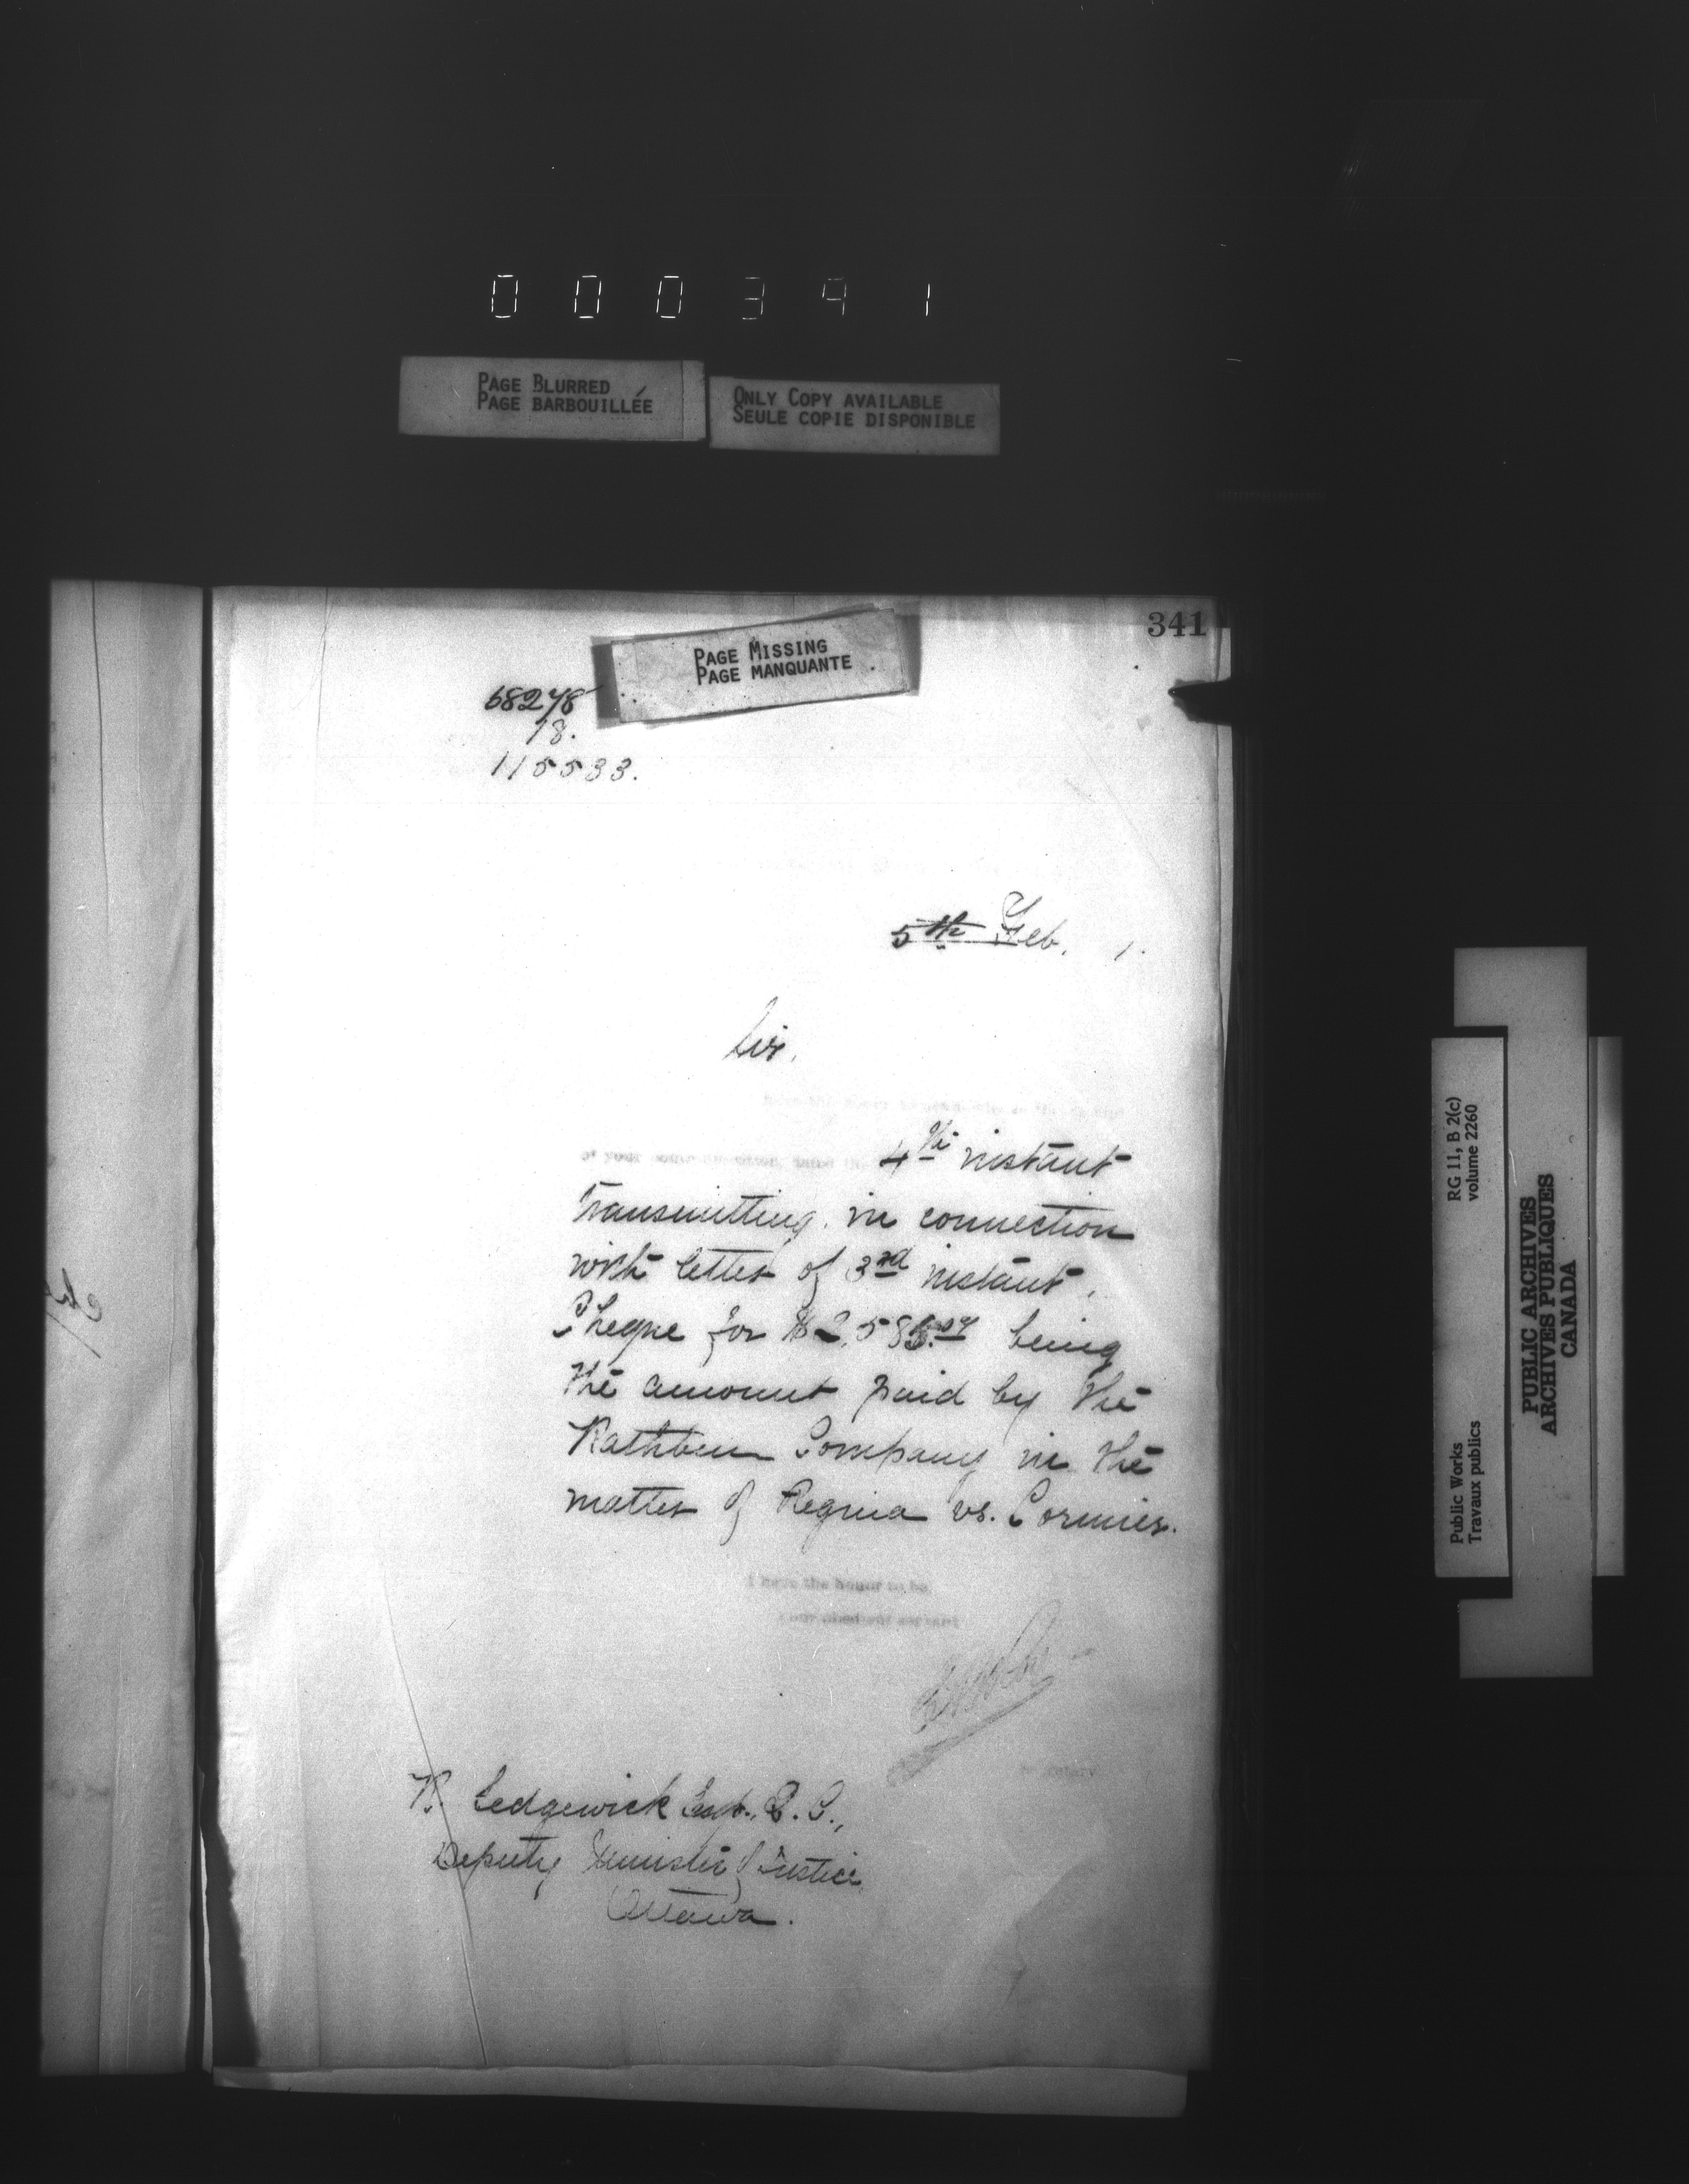 000341
PAGE BLURRED
PAGE BARBOUILLÉE
ONLY COPY AVAILABLE
SEULE COPIE DISPONIBLE
341
PAGE MISSING
PAGE MANQUANTE
68278
18.
115533.
5th Feb. 1.
Sir,
of your 4th instant
transmitting in connection
with letter of 3rd instant,
Cheque for $2,58 being
the amount paid by the
Rathbun Company in the
matter of Regina vs. Cormier.
I have the honor to be,
Your obedient servant
Secretary
R. Sedgewick Esq., Q.C.,
Deputy Minister of Justice,
Ottawa.
RG 11, B 2(c)
volume 2260
Public Works
Travaux publics
PUBLIC ARCHIVES
ARCHIVES PUBLIQUES
CANADA